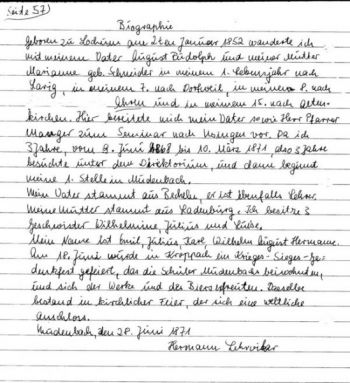 Seite 57)
Biographie
geboren zu Lochum am 2ten Januar 1852 wanderte ich
mit meinem Vater August Rudolph und meiner Mutter
Marianne geb. Schneider in meinem 1. Lebensjahr nach
in meinem 7. nach in meinem 9. nach
und in meinem 15. nach Alten-
kirchen. Hier bereitete mich mein Vater sowie Herr Pfarrer
zum Seminar nach Usingen vor. Da ich
3 Jahre, vom 9. Juni 1868 bis 10. März 1871, also 3 Jahre
besuchte unter dem Direktorium, und dann beginnt
meine 1. Stelle in Müdenbach.
Mein Vater stammt aus Becheln, er ist ebenfalls Lehrer.
Meine Mutter stammt aus Ladenburg. Ich besitze 3
Geschwister Wilhelmine, Julius und
Mein Name ist Emil, Julius, Karl, Wilhelm August Hermann.
Am 18. Juni wurde in Kroppach ein Krieges-Sieges-Ge-
denkfest gefeiert, das die Schüler Müdenbachs beiwohnten,
und sich der Werke und des Bieres freuten. Dasselbe
bestand in kirchlicher Feier, der sich eine weltliche
anschloss.
Müdenbach, den 28. Juni 1871
Hermann